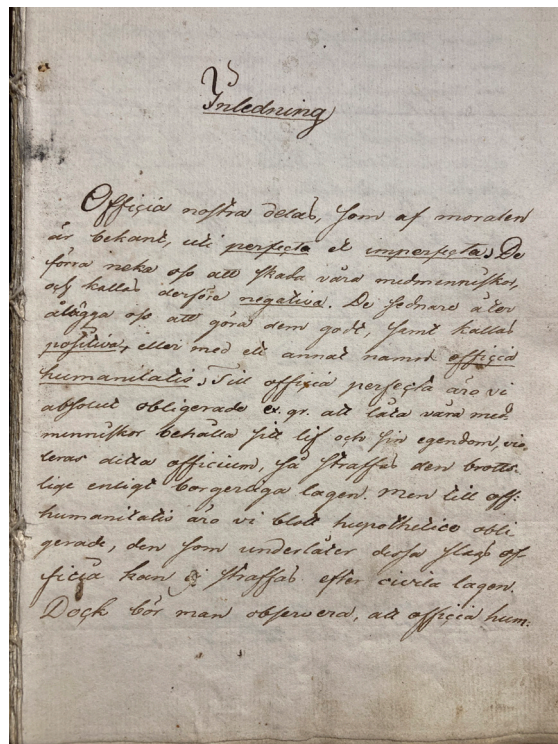 Inledning
Officia nostra delas, som af moralen
är bekant, uti perfecta et imperfecta. De
förra neka oss att skada våra medmenniskor,
och kallas derföre negativa. De sednare åter
ålägga oss att göra dem godt, samt kallas
positiva, eller med ett annat namn officia
humanitatis. Till officia perfecta äro vi
absolut obligerade ex. gr. att låta våra med
menniskor behålla sitt lif och sin egendom, vio,
leras ditta officium, så straffas den brotts
lige enligt borgerliga lagen. Men till offi:
humanitatis äro vi blott hypothetice obli
gerade, den som underlåter dessa slags of-
ficia kan ej straffas efter civila lagen.
Dock bör man observera, att officia hum: